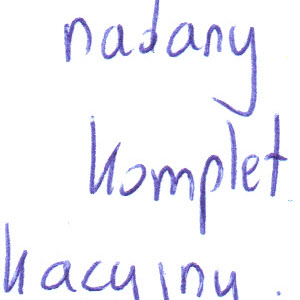 nadany
komplet
kacyjny.